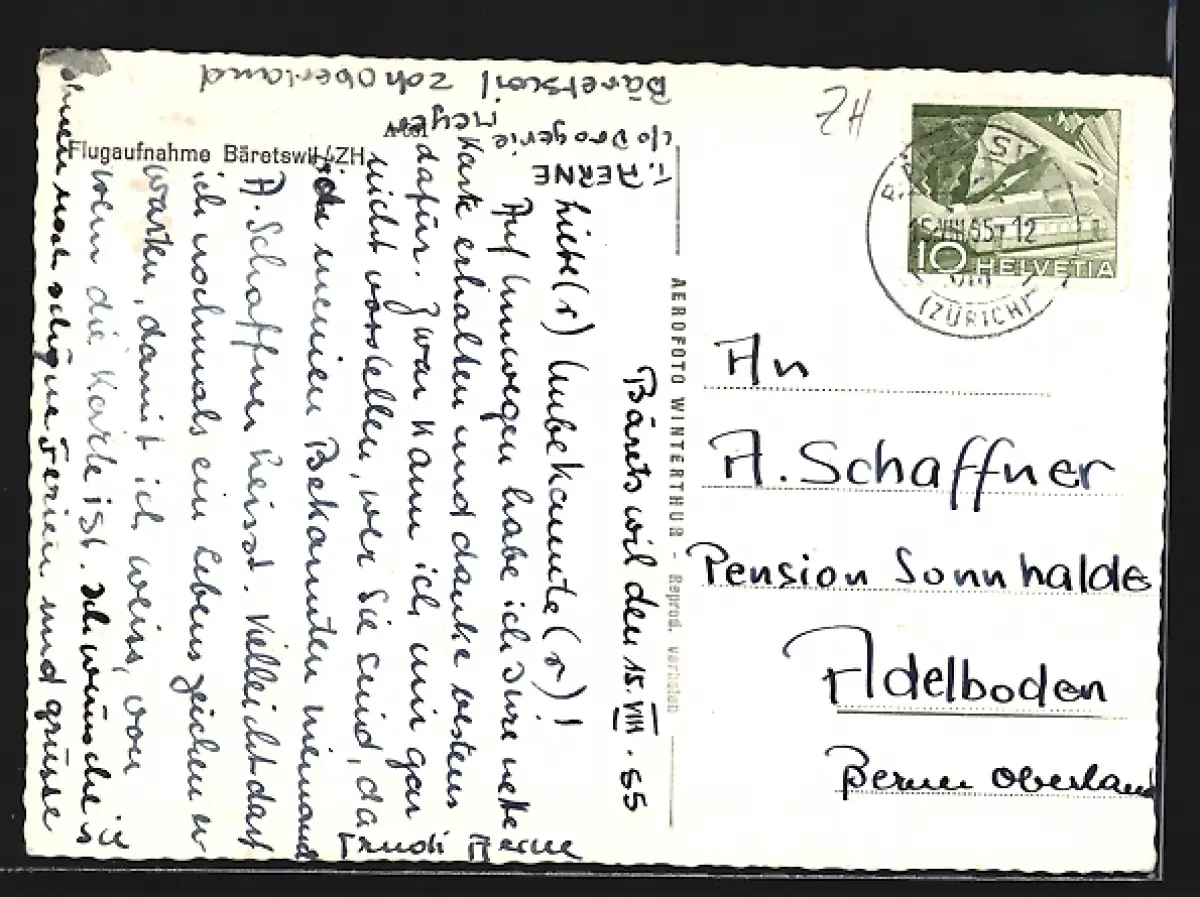 ZH
BÄRETSWIL
15.VIII.55-12
(ZÜRICH)
10 HELVETIA
Flugaufnahme Bäretswil/ZH
AEROFOTO WINTERTHUR - Reprod. verboten
T. AERNE
c/o Drogerie
Meyer
Bäretswil ZchOberland
Bäretswil den 15. VIII. 55
Liebe(r) Unbekannte(r)!
Auf Umwegen habe ich Ihre nette
Karte erhalten und danke bestens
dafür. Zwar kann ich mir gar
nicht vorstellen, wer Sie sind, da
ich meinen Bekannten niemand
A. Schaffner heisst. Vielleicht darf
ich nochmals ein Lebenszeichen er
warten, damit ich weiss, von
wem die Karte ist. Ich wünsche I
hnen noch schöne Ferien und grüsse
Trudi Aerne
An
A. Schaffner
Pension Sonnhalde
Adelboden
Berner Oberland